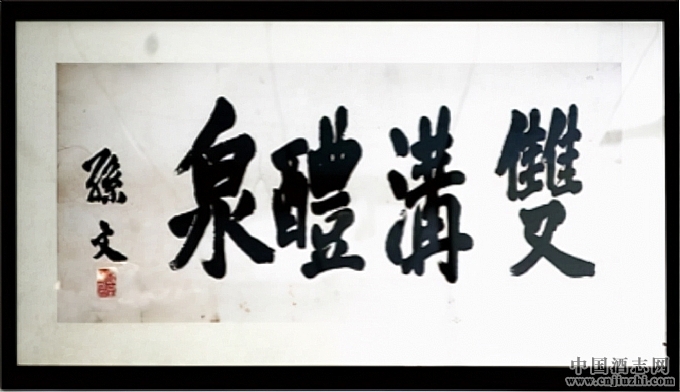 雙溝醴泉
孫文
中国酒志网
www.cnjiuzhi.com